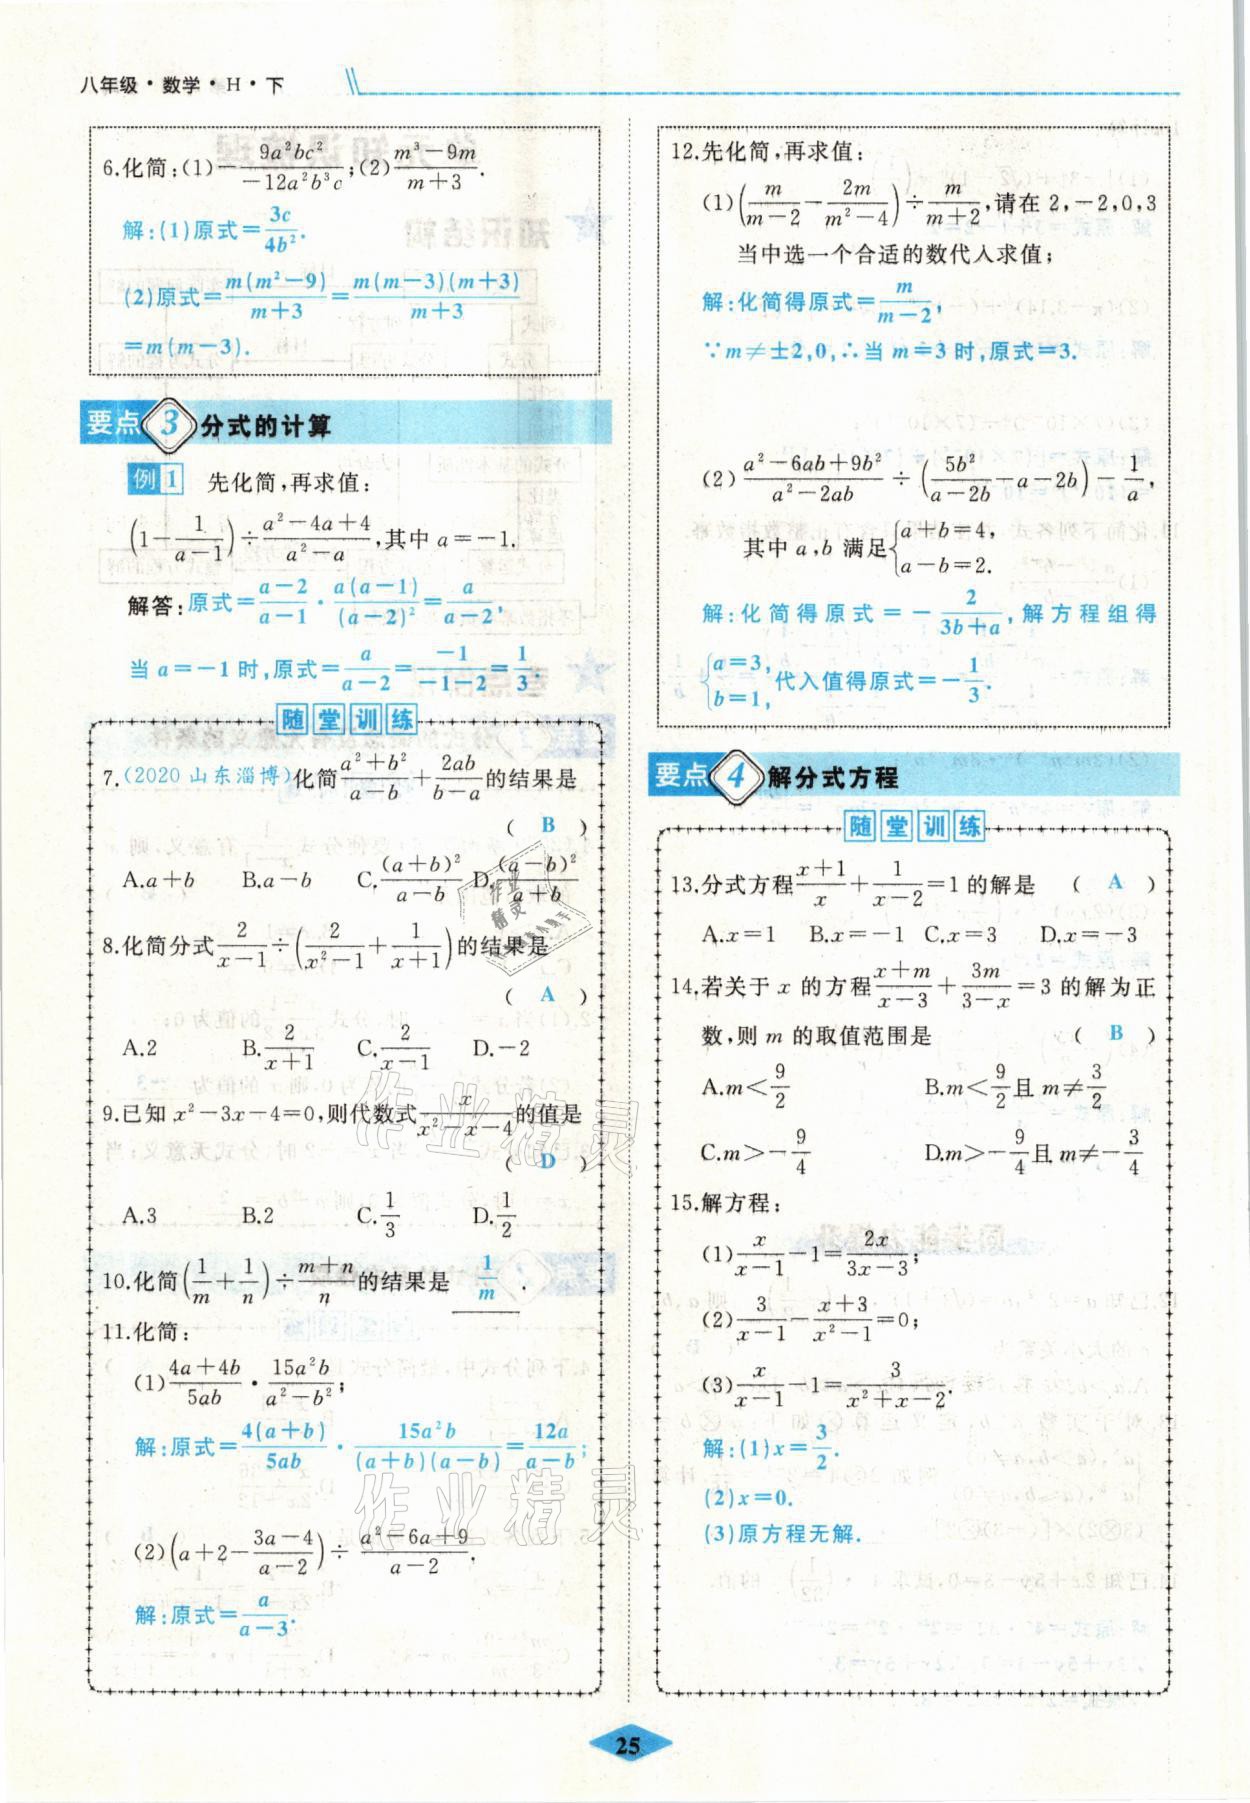 八年级·数学·H·下
6.化简:(1)-\frac{9a²bc²}{-12a²b³c};(2)\frac{m³-9m}{m+3}.
解:(1)原式=\frac{3c}{4b²}.
(2)原式=\frac{m(m²-9)}{m+3}=\frac{m(m-3)(m+3)}{m+3}
=m(m-3).
要点 3 分式的计算
例 1 先化简,再求值:
(1-\frac{1}{a-1})÷\frac{a²-4a+4}{a²-a},其中a=-1.
解答:原式=\frac{a-2}{a-1}·\frac{a(a-1)}{(a-2)²}=\frac{a}{a-2},
当a=-1时,原式=\frac{a}{a-2}=\frac{-1}{-1-2}=\frac{1}{3}.
随堂训练
7.(2020山东淄博)化简\frac{a²+b²}{a-b}+\frac{2ab}{b-a}的结果是
( B )
A.a+b B.a-b C.\frac{(a+b)²}{a-b} D.\frac{(a-b)²}{a+b}
8.化简分式\frac{2}{x-1}÷(\frac{2}{x²-1}+\frac{1}{x+1})的结果是
( A )
A.2 B.\frac{2}{x+1} C.\frac{2}{x-1} D.-2
9.已知x²-3x-4=0,则代数式\frac{x}{x²-x-4}的值是
( D )
A.3 B.2 C.\frac{1}{3} D.\frac{1}{2}
10.化简(\frac{1}{m}+\frac{1}{n})÷\frac{m+n}{n}的结果是 \frac{1}{m} .
11.化简:
(1)\frac{4a+4b}{5ab}·\frac{15a²b}{a²-b²};
解:原式=\frac{4(a+b)}{5ab}·\frac{15a²b}{(a+b)(a-b)}=\frac{12a}{a-b};
(2)(a+2-\frac{3a-4}{a-2})÷\frac{a²-6a+9}{a-2}.
解:原式=\frac{a}{a-3}.
12.先化简,再求值:
(1)(\frac{m}{m-2}-\frac{2m}{m²-4})÷\frac{m}{m+2},请在2,-2,0,3
当中选一个合适的数代入求值;
解:化简得原式=\frac{m}{m-2},
∵m≠±2,0,∴当m=3时,原式=3.
(2)\frac{a²-6ab+9b²}{a²-2ab}÷(\frac{5b²}{a-2b}-a-2b)-\frac{1}{a},
其中a,b满足{a+b=4,
a-b=2.
解:化简得原式=-\frac{2}{3b+a},解方程组得
{a=3,
b=1,代入值得原式=-\frac{1}{3}.
要点 4 解分式方程
随堂训练
13.分式方程\frac{x+1}{x}+\frac{1}{x-2}=1的解是 ( A )
A.x=1 B.x=-1 C.x=3 D.x=-3
14.若关于x的方程\frac{x+m}{x-3}+\frac{3m}{3-x}=3的解为正
数,则m的取值范围是 ( B )
A.m<\frac{9}{2} B.m<\frac{9}{2}且m≠\frac{3}{2}
C.m>-\frac{9}{4} D.m>-\frac{9}{4}且m≠-\frac{3}{4}
15.解方程:
(1)\frac{x}{x-1}-1=\frac{2x}{3x-3};
(2)\frac{3}{x-1}-\frac{x+3}{x²-1}=0;
(3)\frac{x}{x-1}-1=\frac{3}{x²+x-2}.
解:(1)x=\frac{3}{2}.
(2)x=0.
(3)原方程无解.
作业精灵
作业精灵
25